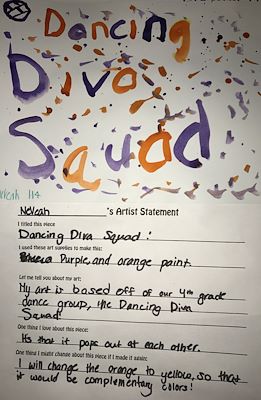 Dancing
Diva
Squad
114
Neveah 's Artist Statement
I titled this piece
Dancing Diva Squad!
I used these art supplies to make this:
Purple, and orange paint.
Let me tell you about my art:
My art is based off of our 4th grade
dance group, the Dancing Diva
Squad!
One thing I love about this piece:
Its that it pops out at each other.
One thing I might change about this piece if I made it again:
I will change the orange to yellow, so that
it would be complementary colors!